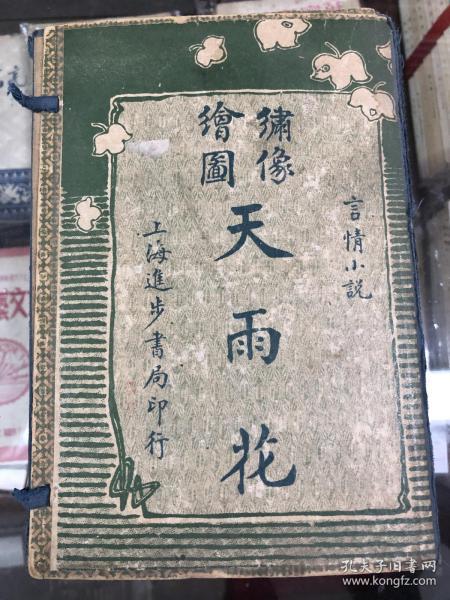 言情小說
繡像
繪圖
天雨花
上海進步書局印行
文
孔夫子旧书网
www.kongfz.com